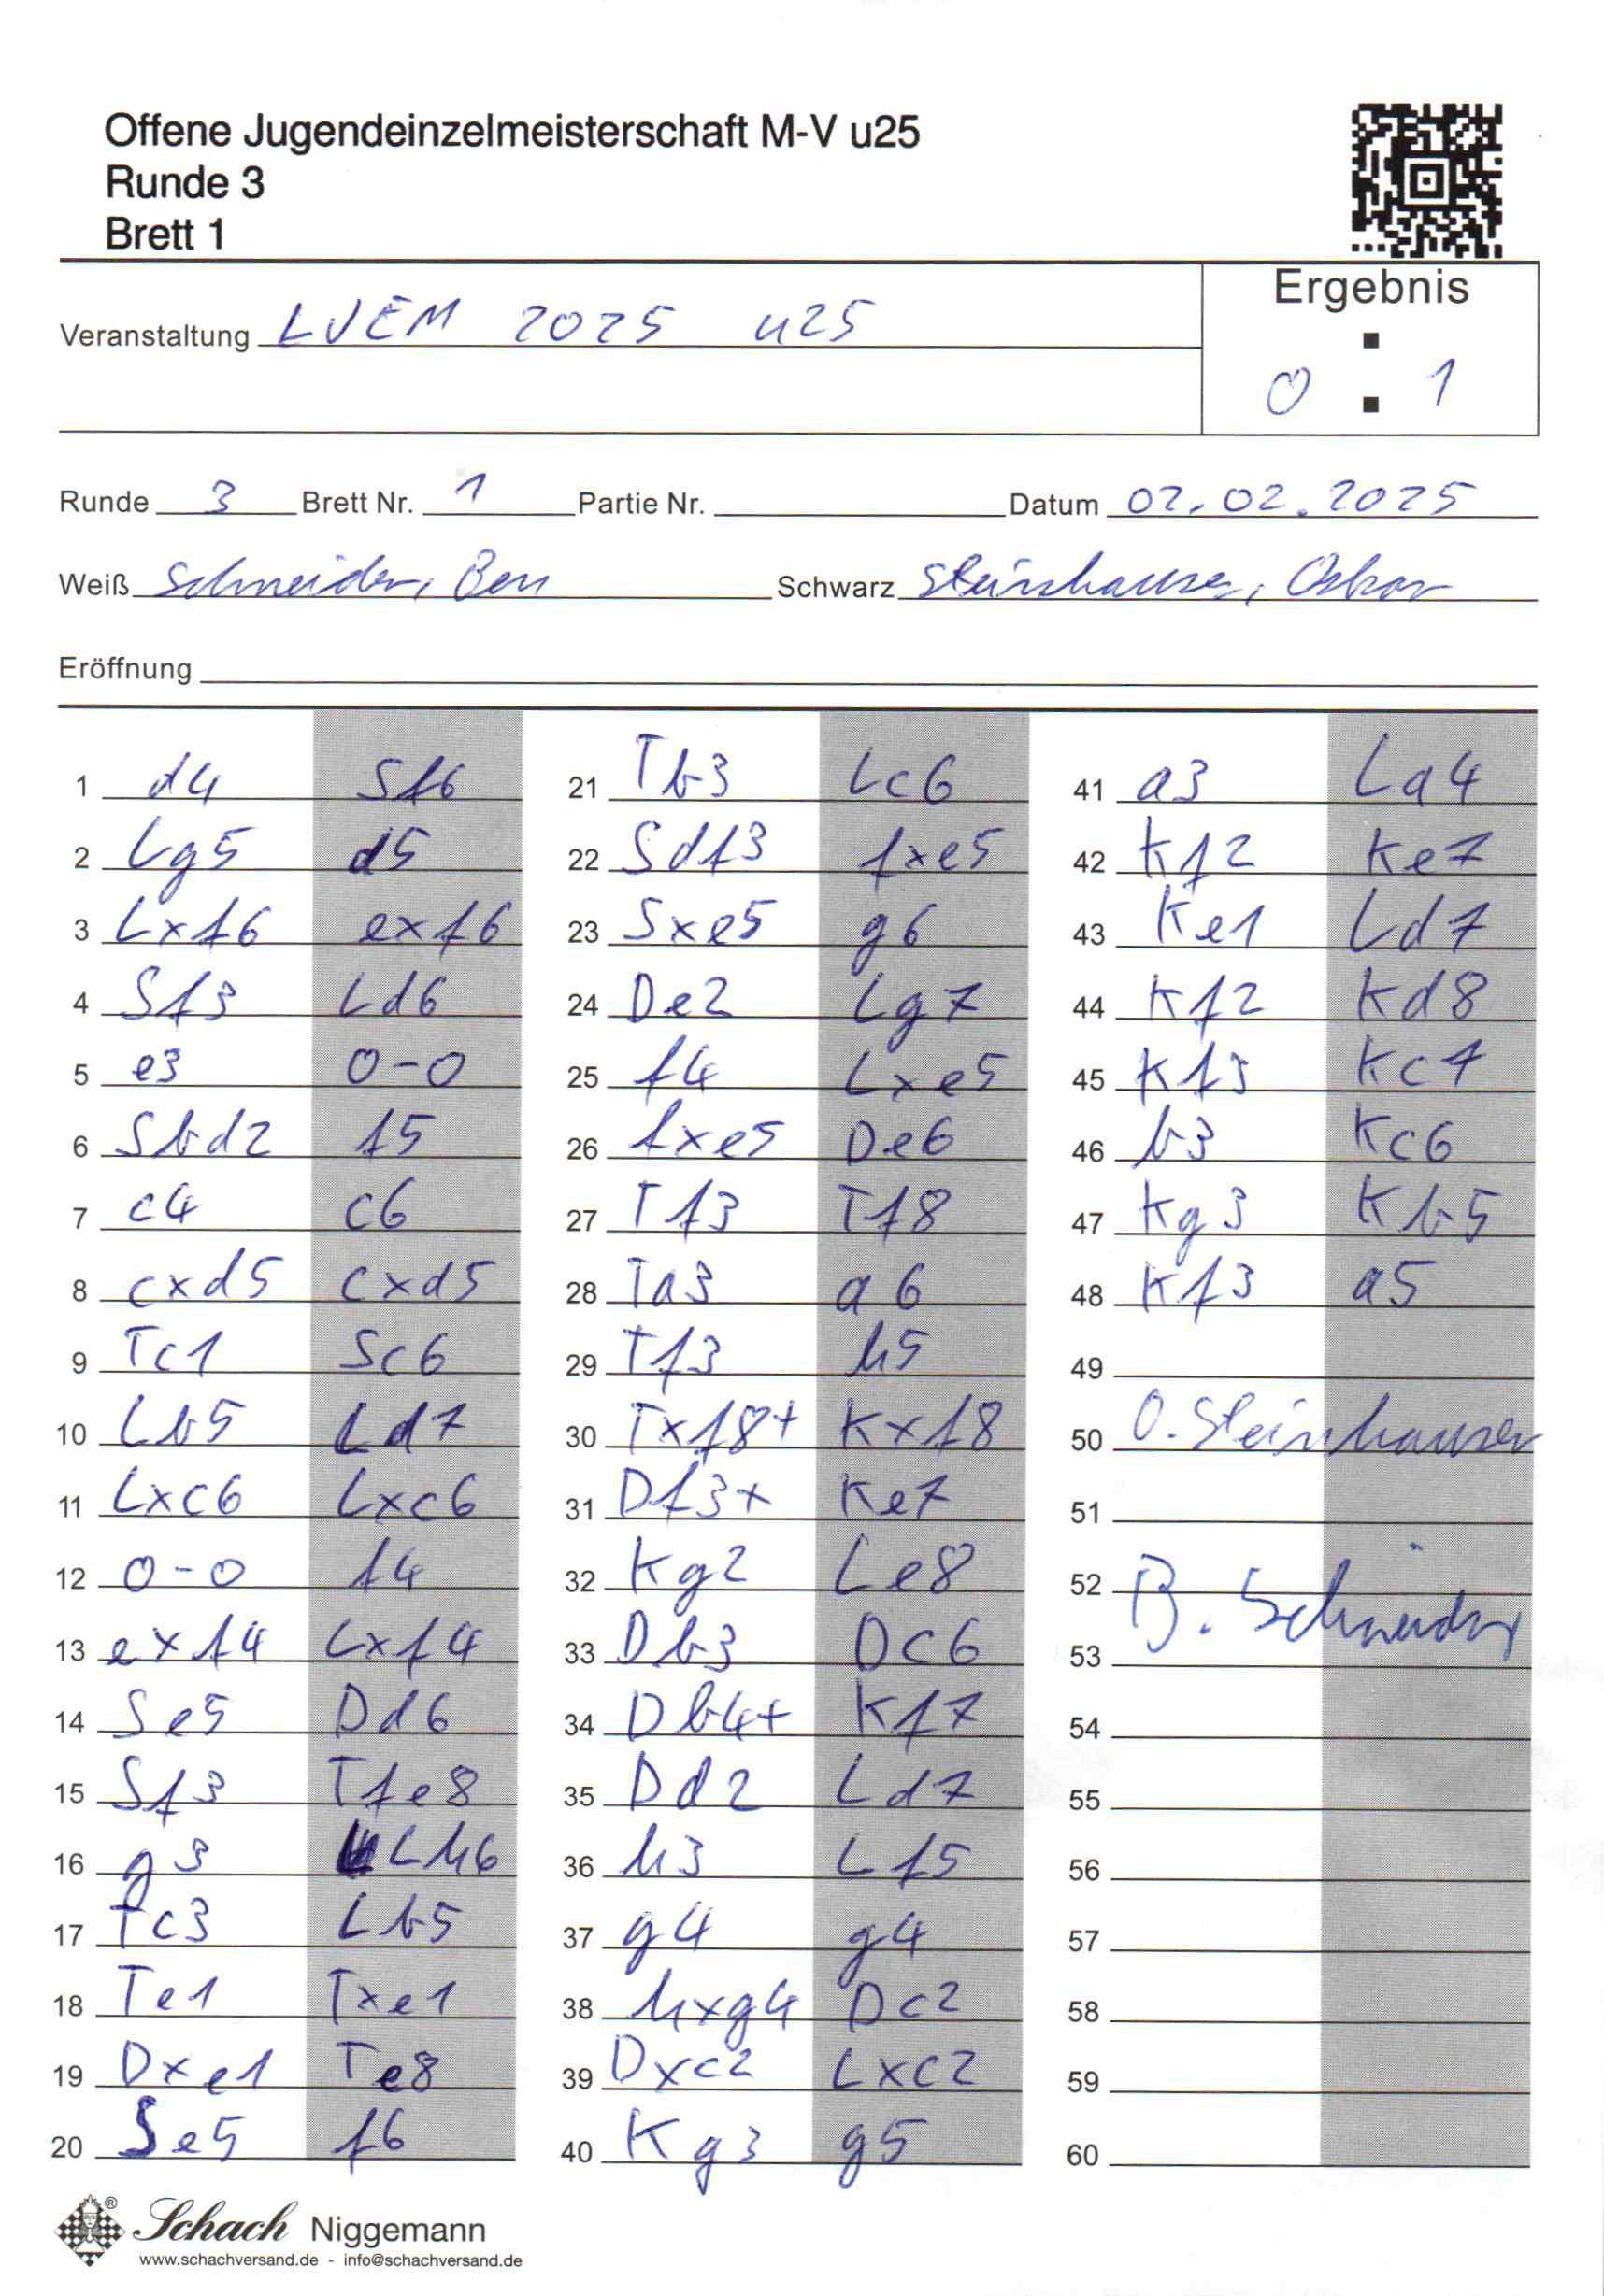 Offene Jugendeinzelmeisterschaft M-V u25
Runde 3
Brett 1
Ergebnis
0 : 1
Veranstaltung LJEM 2025 u25
Runde 3 Brett Nr. 1 Partie Nr. Datum 02.02.2025
Weiß Schneider, Ben Schwarz Steinhauser, Oskar
Eröffnung
1 d4 Sf6
2 Lg5 d5
3 Lxf6 exf6
4 Sf3 Ld6
5 e3 0-0
6 Sbd2 f5
7 c4 c6
8 cxd5 cxd5
9 Tc1 Sc6
10 Lb5 Ld7
11 Lxc6 Lxc6
12 0-0 f4
13 exf4 Lxf4
14 Se5 Dd6
15 Sf3 Tfe8
16 g3 Lh6
17 Tc3 Lb5
18 Te1 Txe1
19 Dxe1 Te8
20 Se5 f6
21 Tb3 Lc6
22 Sdf3 fxe5
23 Sxe5 g6
24 De2 Lg7
25 f4 Lxe5
26 fxe5 De6
27 Tf3 Tf8
28 Ta3 a6
29 Tf3 h5
30 Txf8+ Kxf8
31 Df3+ Ke7
32 Kg2 Le8
33 Db3 Dc6
34 Db4+ Kf7
35 Dd2 Ld7
36 h3 Lf5
37 g4 g4
38 hxg4 Dc2
39 Dxc2 Lxc2
40 Kg3 g5
41 a3 La4
42 Kf2 Ke7
43 Ke1 Ld7
44 Kf2 Kd8
45 Kf3 Kc7
46 b3 Kc6
47 Kg3 Kb5
48 Kf3 a5
49
50 O. Steinhauser
51
52 B. Schneider
53
54
55
56
57
58
59
60
® Schach Niggemann
www.schachversand.de - info@schachversand.de